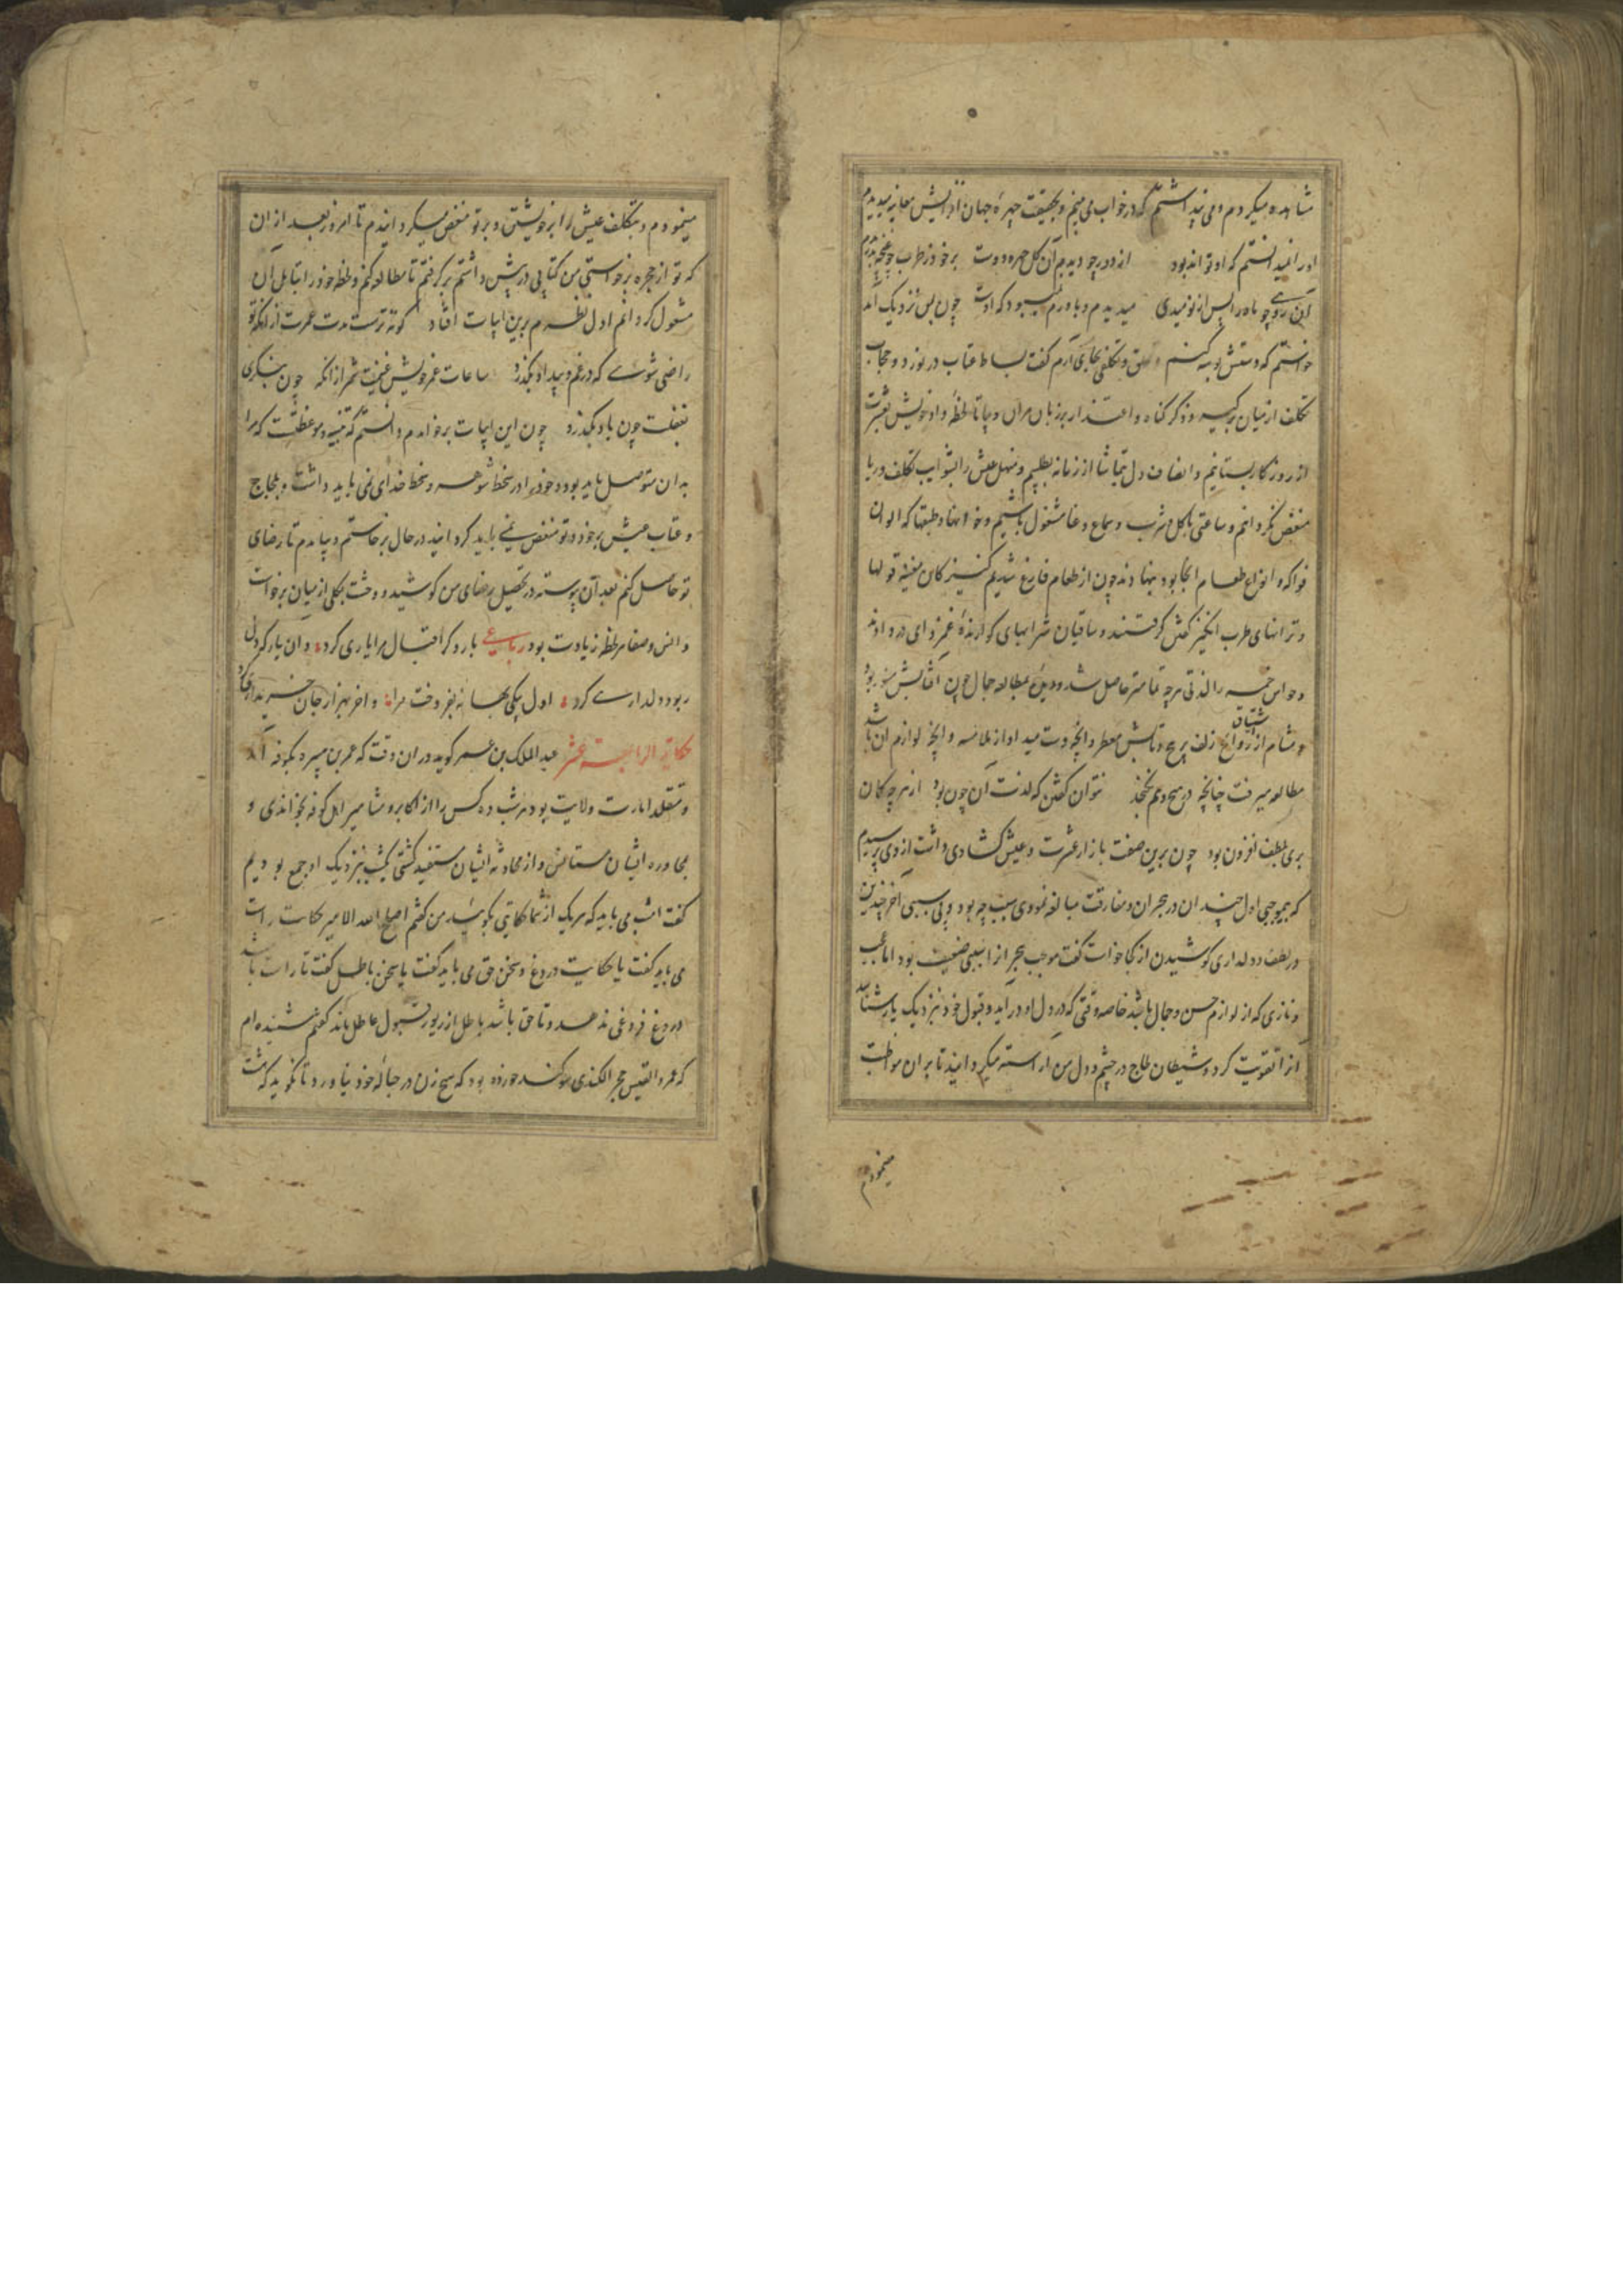 مشاهده میکردم و می پنداشتم که در خواب می بینم و بحقیقت چهرهٔ جهان آرایش معاینه میدیدم
او را نمیدانستم که او تواند بود از دور چو دیدم آن گل چهره دوست بر خود ز طرب چو غنچه بدریدم
آن روی چو ماه را پس از نومیدی میدیدم و باورم نمیبود که اوست چون بمن نزدیک آمد
خواستم که دستش بوسه کنم و تملق و تکلفی بجای آرم گفت بساط عتاب در نورد و حجاب
تکلف از میان برگیر و ذکر گناه و اعتذار بر زبان مران و بیا تا لحظهٔ داد خویش بعشرت
از روزگار بستانیم و انصاف دل بتماشا از زمانه بطلبیم و منهل عیش را بشوایب تکلف و ریا
منغص نگردانیم و ساعتی باکل و شرب و سماع و غنا مشغول باشیم و خوانها و طبقها که الوان
فواکه و انواع طعام آنجا بود بنهادند چون از طعام فارغ شدیم کنیزکان مغنیه قولها
و ترانهای طرب انگیز گفتن گرفتند و ساقیان شرابهای گوارندهٔ غمزدای در دادند
و حواس خمسه را لذتی هرچه تمامتر حاصل شد و دیده بمطالعه جمال چون آفتابش منور بود
و مشام از استنشاق روایح زلف پیچ و تابش معطر و آنچه دست میداد از ملامسه و آنچه لوازم آن باشد
مطالعه میرفت چنانچه در هیچ وهم نگنجد نتوان گفتن که لذت آن چون بود از هرچه گمان
بری بلطف افزون بود چون برین صفت بازار عشرت و عیش گشادی داشت از وی پرسیدم
که بموجبی اول چندان در هجران و مفارقت مبالغه نمودی سبب چه بود و بی سببی آخر چندین
در لطف و دلداری کوشیدن از کجا خواست گفت موجب هجر از سببی ضعیف بود اما عجب
و نازی که از لوازم حسن و جمال باشد خاصه وقتی که در دل او درآید و قبول خود نزدیک یار شناسد
آنرا تقویت کرد و شیطان لجاج در چشم و دل من آراسته میگردانید تا بران مواظبت
مینمودم
مینمودم و بتکلف عیش را بر خویشتن و بر تو منغص میگردانیدم تا امروز بعد از آن
که تو از حجره برخواستی من کتابی در پیش داشتم برگرفتم تا مطالعه کنم و لحظه خود را بتأمل آن
مشغول گردانم اول نظرم برین ابیات افتاد کوته ترست مدت عمرت از آنکه تو
راضی شوی که در غم و بیداد بگذرد ساعات عمر خویش غنیمت شمر از آنکه چون بنگری
بغفلت چون باد بگذرد چون این ابیات برخواندم دانستم که تنبیه و موعظتست که مرا
بدان متوصل باید بود و خود را در سخط شوهر و سخط خدای نمی باید داشت و بلجاج
و عتاب عیش بر خود و تو منغص نمی باید گردانید در حال برخاستم و بیامدم تا رضای
تو حاصل کنم بعد از آن پیوسته در تحصیل رضای من کوشید و وحشت بکلی از میان برخاست
و انس و صفا هر لحظه زیادت بود رباعی بار دگر اقبال مرا یاری کرد وان یار که دل
ربود دلداری کرد اول بیکی بهانه بفروخت مرا و آخر بهزار جان خریداری کرد
حکایة الرابعة عشر عبد الملک بن عمیر گوید در آن وقت که عمر بن هبیره بکوفه آمد
و متقلد امارت ولایت بود هر شب ده کس را از اکابر و مشاهیر اهل کوفه بخواندی و
بمحاوره ایشان مستانس و از محادثه ایشان مستفید گشتی یکشب بنزدیک او جمع بودیم
گفت امشب می باید که هر یک از شما حکایتی بگویند من گفتم اصلح الله الامیر حکایت راست
می باید گفت یا حکایت دروغ و سخن حق می باید گفت یا سخن باطل گفت تا راست باشد
دروغ فروغی ندهد و تا حق باشد باطل از زیور قبول عاطل باند گفتم شنیده ام
که عمرو القیس حجر الکندی سوگند خورده بود که هیچ زن در حباله خود نیاورد تا نگوید که هشت